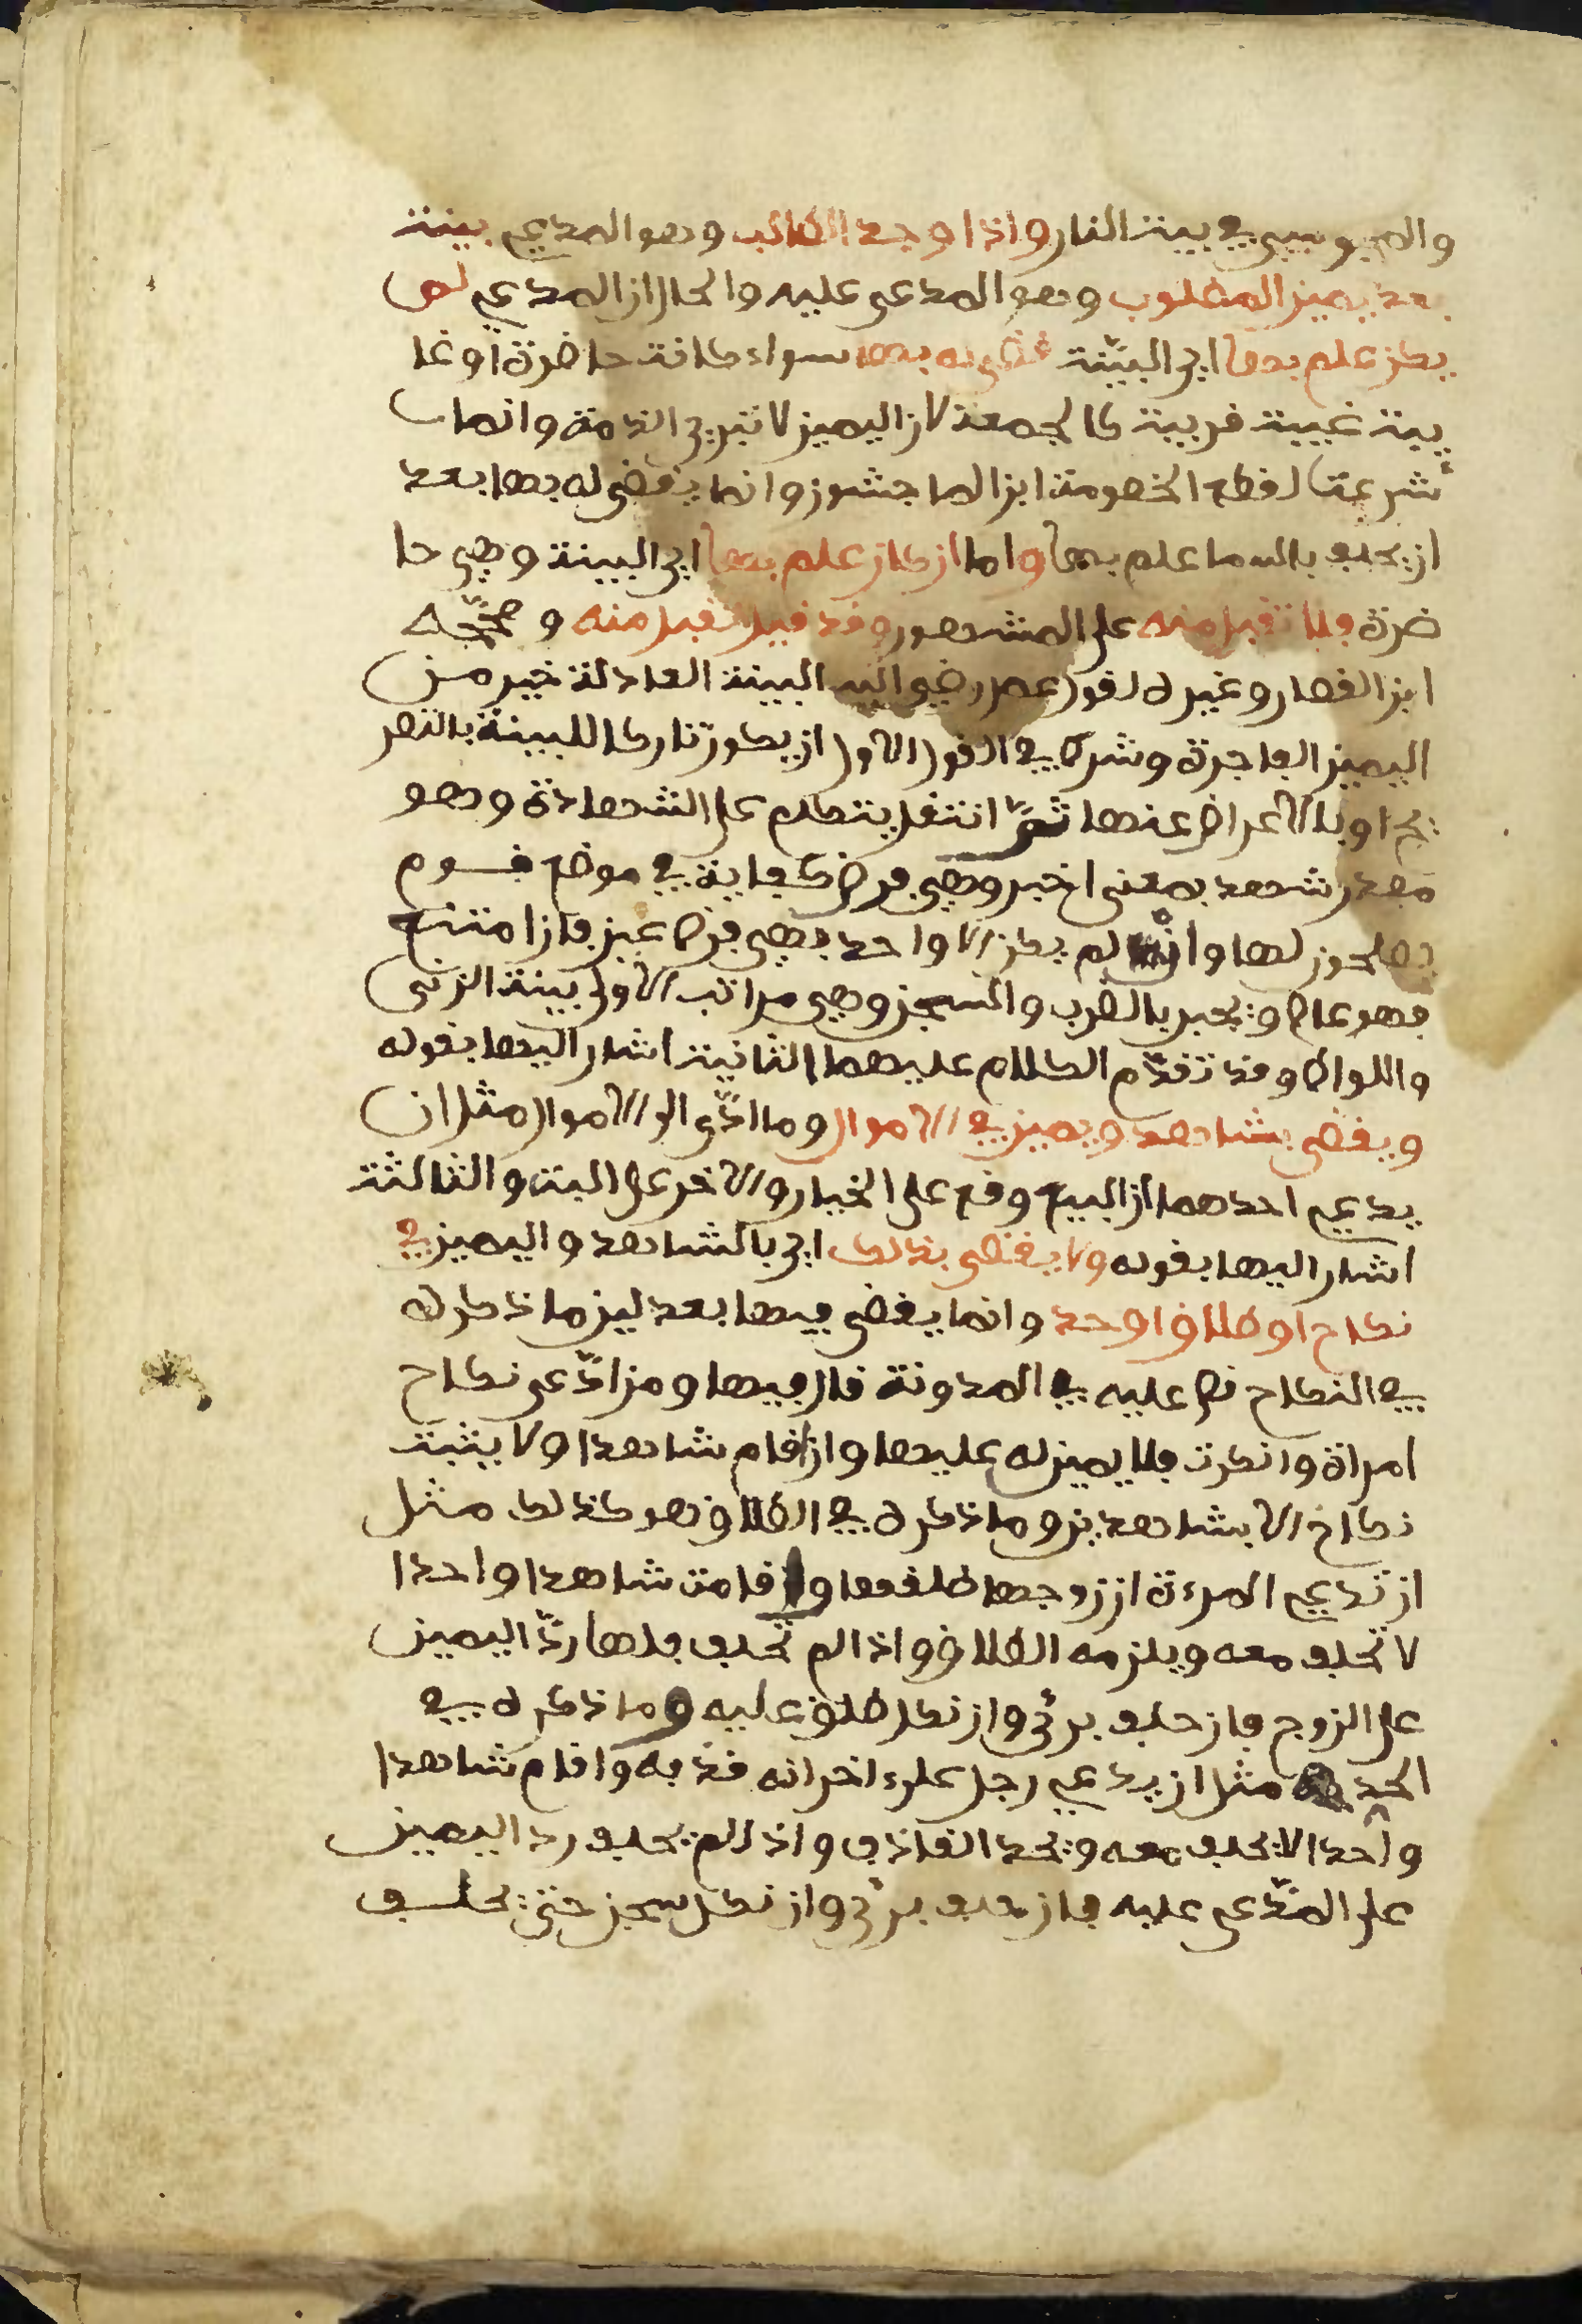 والمجوسي في بيت النار واذا وجد الطالب وهو المدعي بينة
بعد يمين المطلوب وهو المدعى عليه والحال ان المدعي لم
يكن علم بها اي البينة قضي له بها سواء كانت حاضرة او غا
يبة غيبة قريبة كالجمعة لان اليمين لا تبري الذمة وانما
شرعت لقطع الخصومة ابن الماجشون وانما يقضى له بها بعد
ان يحلف بالله ما علم بها واما ان كان علم بها اي البينة وهي حا
ضرة فلا تقبل منه على المشهور وقد قيل تقبل منه وصححه
ابن القصار وغيره لقول عمر رضي الله البينة العادلة خير من
اليمين الفاجرة وشرط في القول الاول ان يكون تاركا للبينة بالتصر
يح او بالاعراض عنها ثم انتقل يتكلم على الشهادة وهو
مصدر شهد بمعنى اخبر وهي فرض كفاية في موضع فيه من
يحملون لها وان لم يكن الا واحد فهي فرض عين فان امتنع
فهو عاص ويجبر بالضرب والسجن وهي مراتب الاولى بينة الزنى
واللواط وقد تقدم الكلام عليهما الثانية اشار اليها بقوله
ويقضى بشاهد ويمين في الاموال وما ادى الى الاموال مثل ان
يدعي احدهما ان البيع وقع على الخيار والاخر على البت والثالثة
اشار اليها بقوله ولا يقضى بذلك اي بالشاهد واليمين في
نكاح او طلاق او حد وانما يقضى فيها بعدلين ما ذكره
في النكاح نص عليه في المدونة قال فيها ومن ادعى نكاح
امراة وانكرت فلا يمين له عليها وان اقام شاهدا ولا يثبت
نكاح الا بشاهدين وما ذكره في الطلاق هو كذلك مثل
ان تدعي المرءة ان زوجها طلقها واقامت شاهدا واحدا
لا تحلف معه ويلزمه الطلاق واذا لم تحلف فلها رد اليمين
على الزوج فان حلف برئ وان نكل طلق عليه وما ذكره في
الحد مثل ان يدعي رجل على اخر انه قذفه واقام شاهدا
واحدا لا يحلف معه ويحد القاذف واذا لم يحلف رد اليمين
على المدعى عليه فان حلف برئ وان نكل سجن حتى يحلف